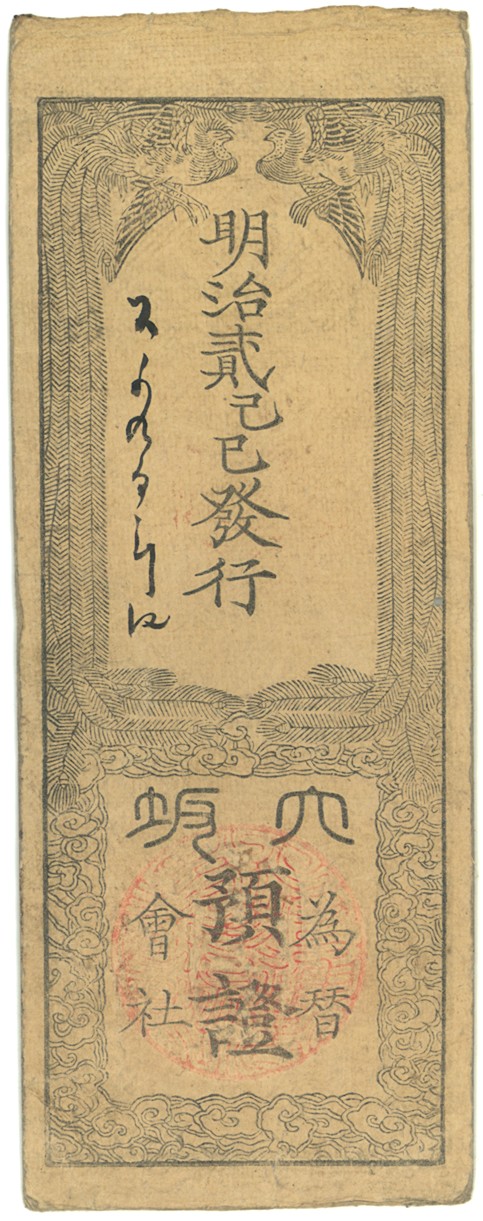 明治貳己巳發行
大坂
為替
預證
會社